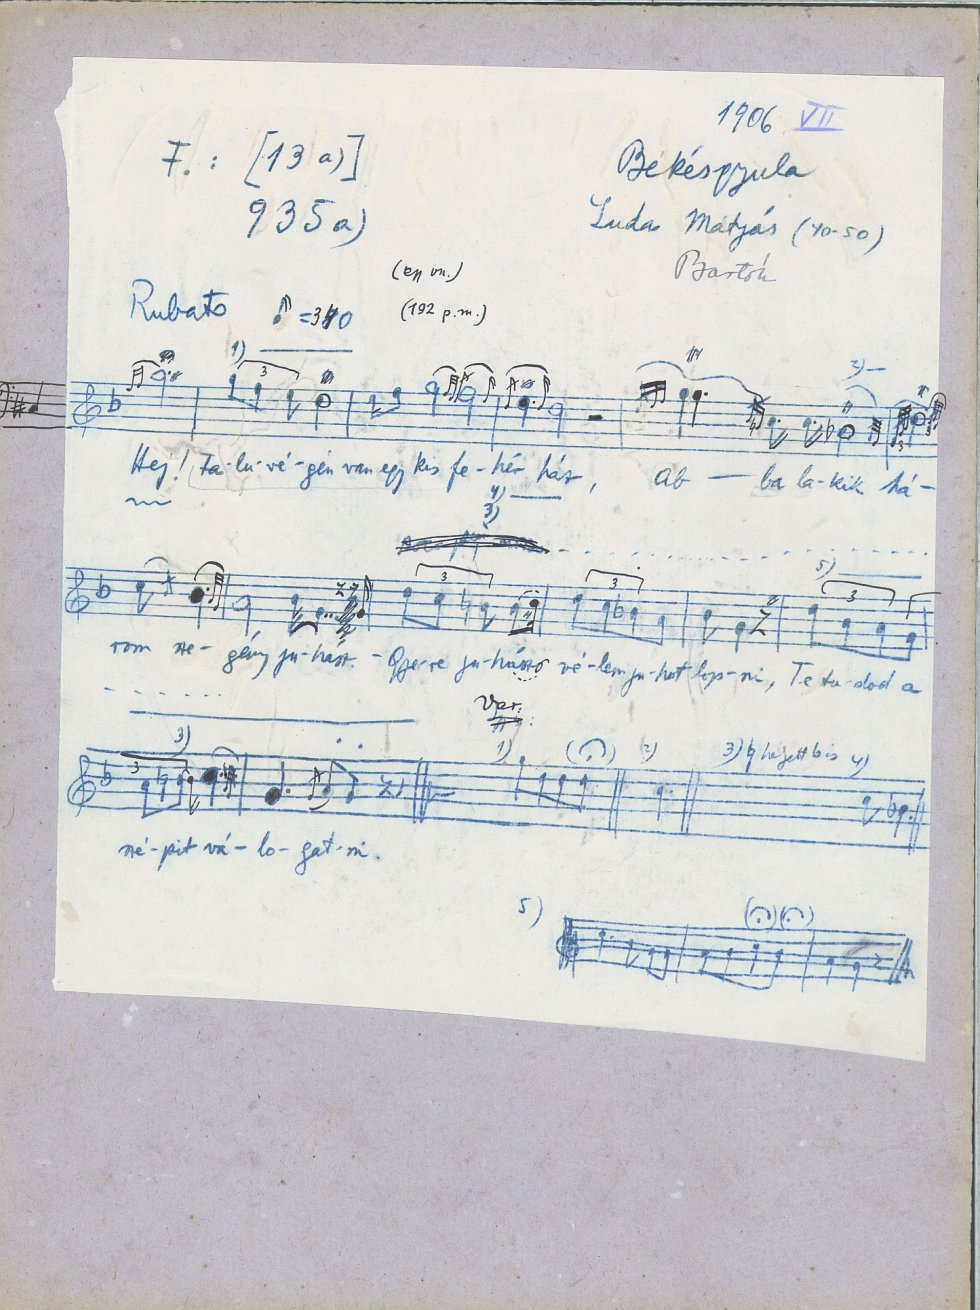 1906 VII
F. : [13 a)]
Békésgyula
935 a)
Luda Mátyás (40-50)
Bartók
Rubato ♪ = 310
(192 p.m.)
1) 3 2)
Hej! Ta-lu-vé-gén van egy kis fe-hér ház, Ab — ba la-kik há-
4)
3)
3 3 5) 3
rom sze-gény ju-hász. - Gye-re ju-hász vé-lem ju-hot lop-ni, Te tu-dod a
Var:
3 3) 1) 2) 3) ♮ helyett bis 4)
szé-pit vá-lo-gat-ni.
5)